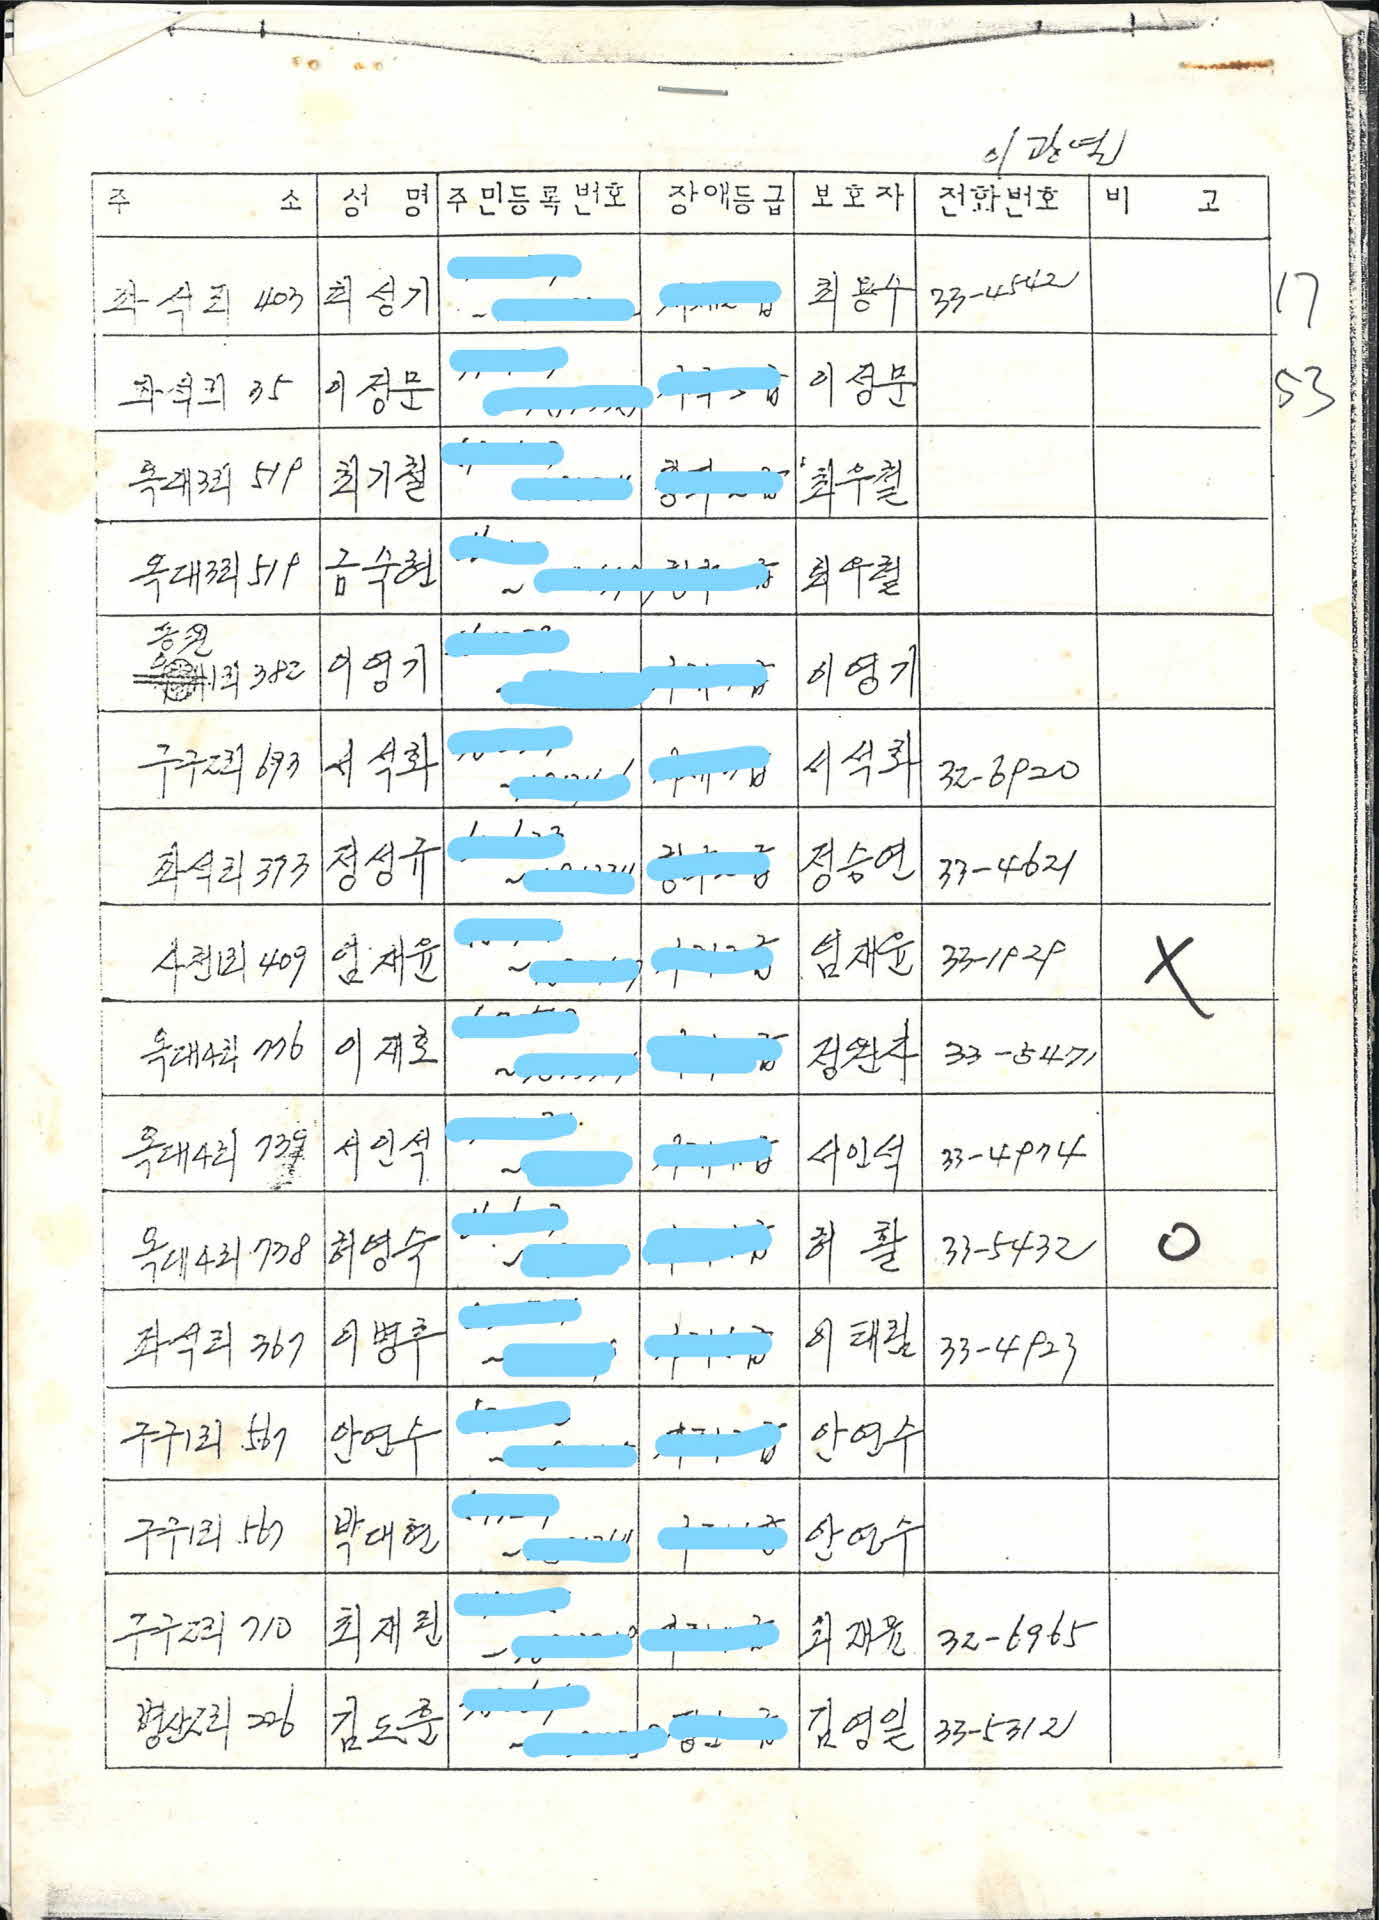 이광열
주 소 성 명 주민등록번호 장애등급 보호자 전화번호 비 고
좌석리 403 최성기 최용수 33-4542 17
좌석리 35 이정문 이정문 53
옥대3리 519 최기철 최우철
옥대3리 519 금숙현 최우철
용천
1리 382 이영기 이영기
구구2리 693 서석화 서석화 32-6920
좌석리 373 정성규 정승연 33-4621
사천1리 409 엄재윤 엄재윤 33-1929 X
옥대4리 776 이재호 정완수 33-5471
옥대4리 739 서인석 서인석 33-4974
옥대4리 738 허영숙 허활 33-5432 O
좌석리 367 이병주 이태림 33-4923
구구1리 567 안연수 안연수
구구1리 567 박대현 안연수
구구2리 710 최재린 최재용 32-6965
병산2리 226 김도훈 김영일 33-5312